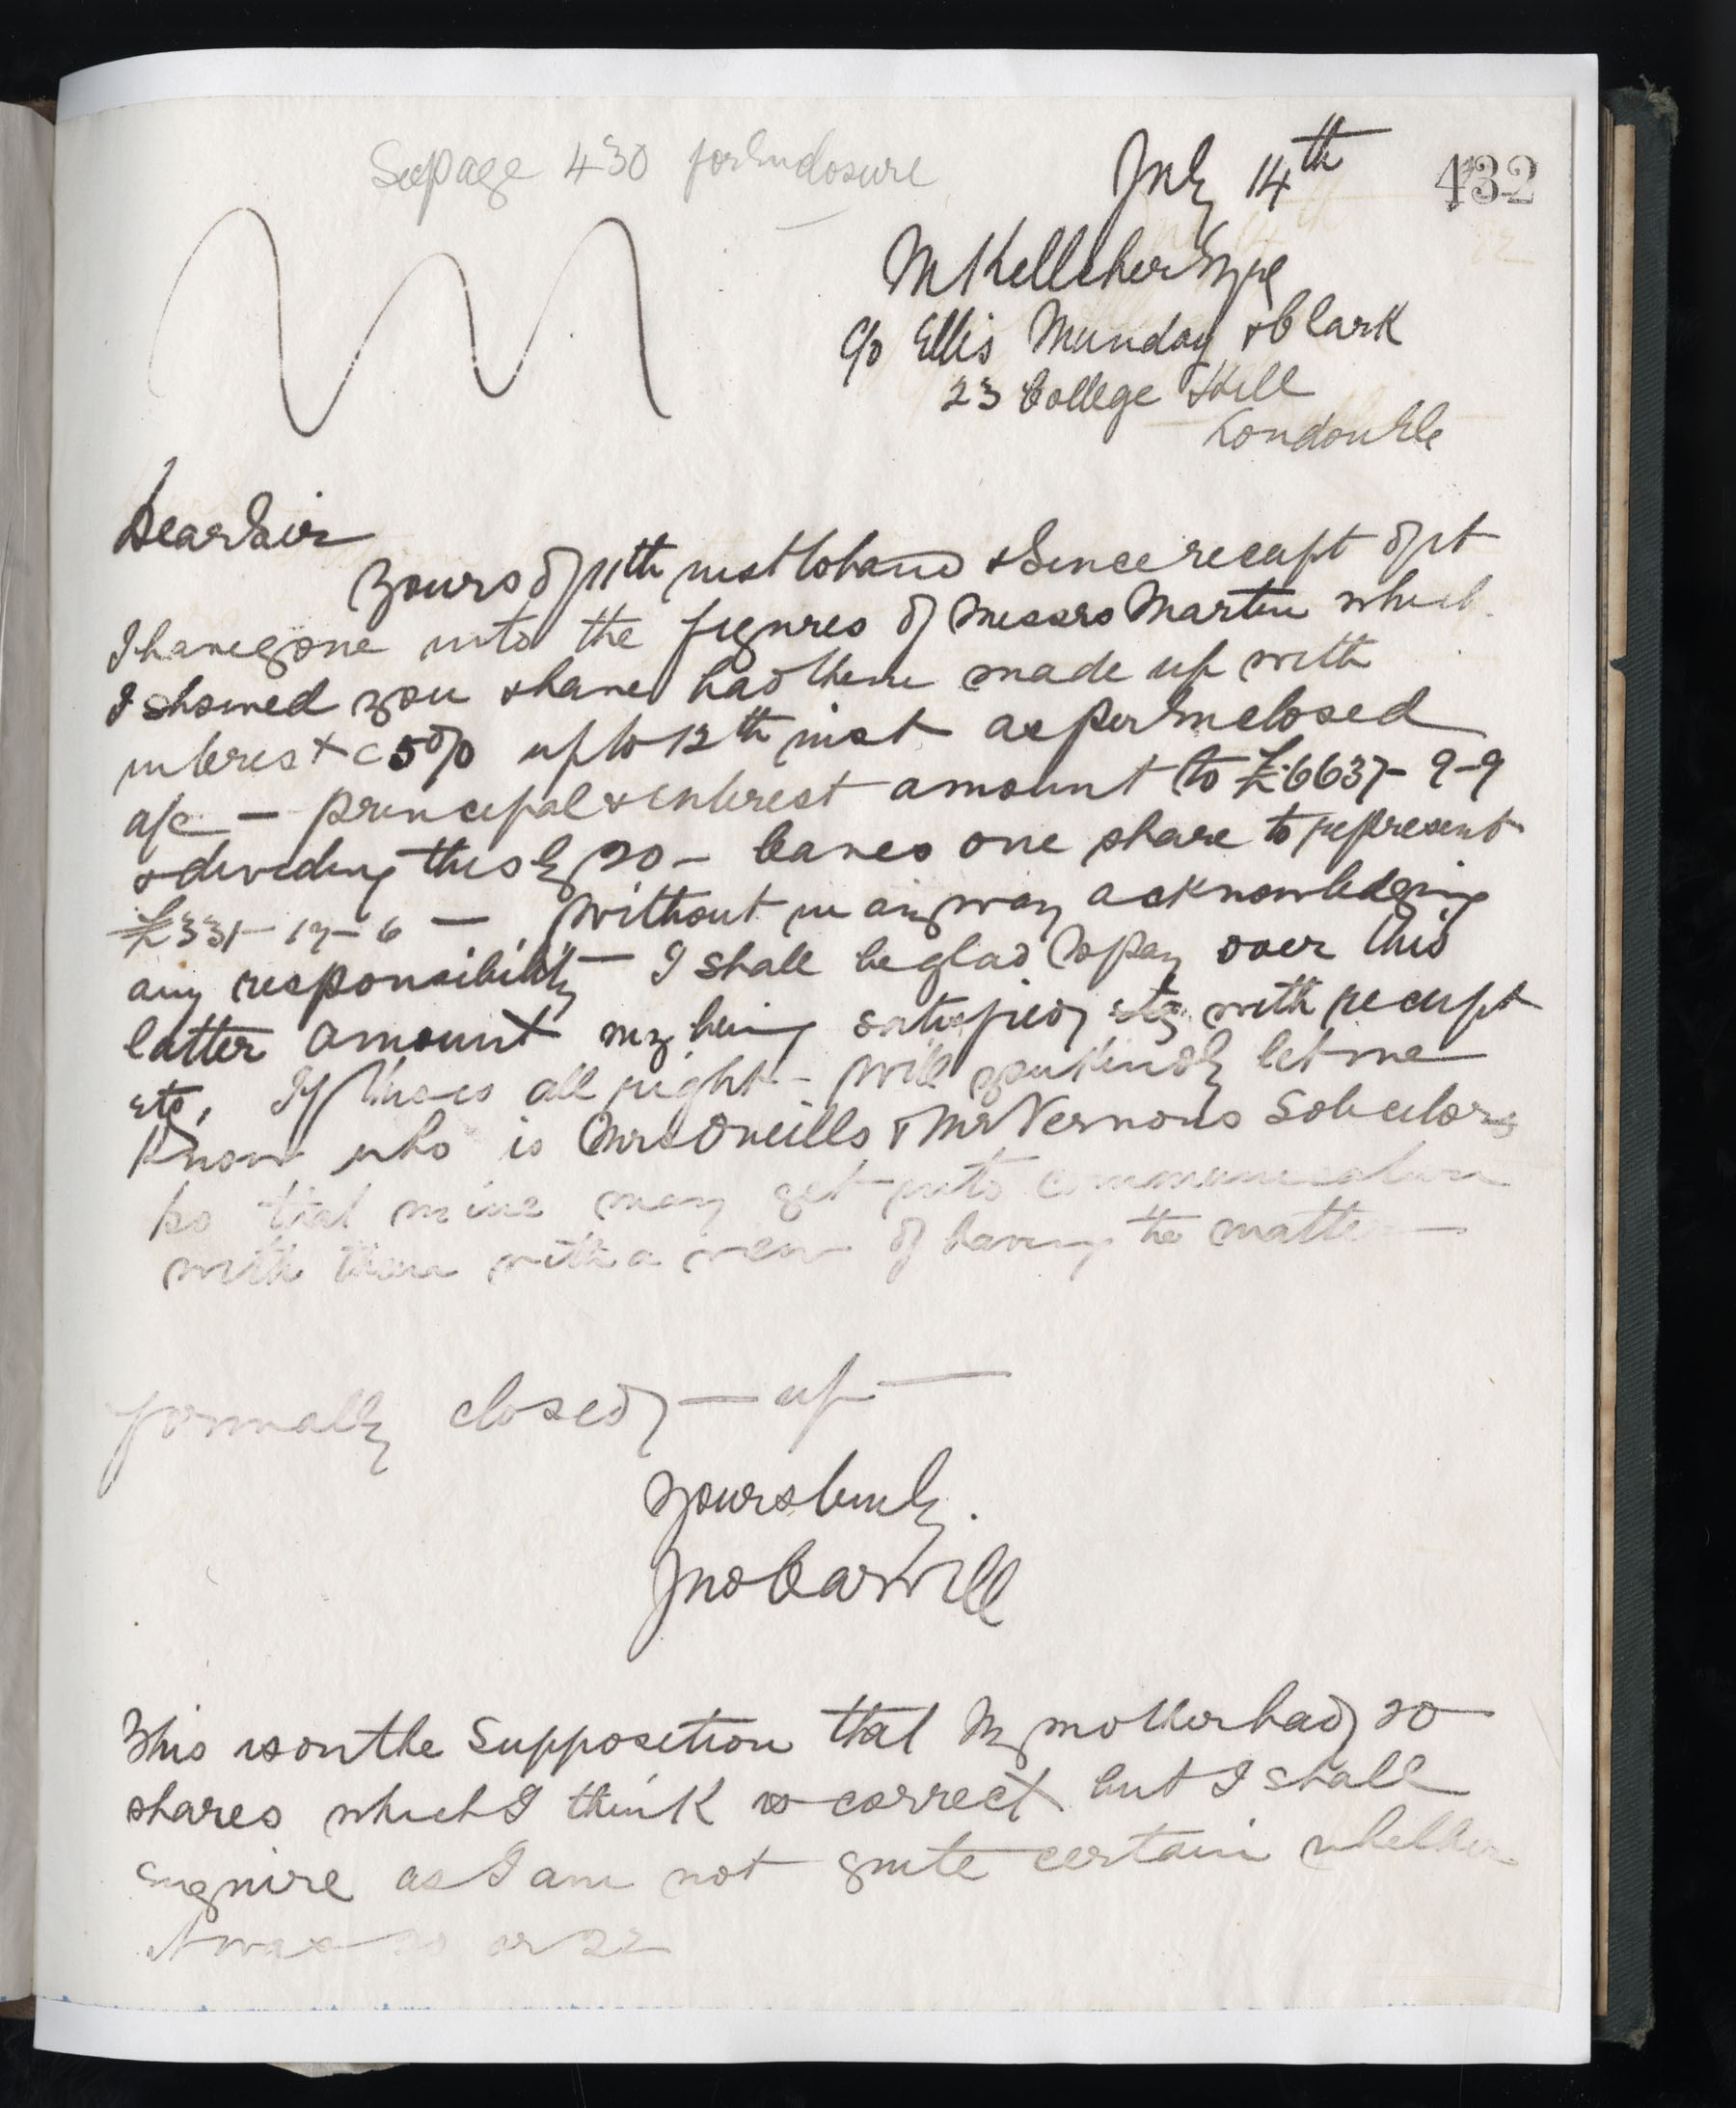 See page 430 for Enclosure
July 14th
432
M Kellcher Esqre
c/o Ellis Munday & Clark
23 College Hill
London E.C.
Dear Sir
Yours of 11th inst to hand & Since receipt of it
I have gone into the figures of Messrs Martin which
I showed you & have had them made up with
interest @ 5% up to 12th inst as per Enclosed
a/c — principal & interest amount to £6637-9-9
& dividing this by 20 — leaves one share to represent
£331-17-6 — Without in any way acknowledging
any responsibility — I shall be glad to pay over this
latter amount my being satisfied, etc with receipt
etc, If this is all right — Will you kindly let me
Know who is Mrs Oneills & Mr Vernons Solicitors
so that mine may get into communication
with them with a view of having the matter —
formally closed — up —
Yours truly.
Jno Carvill
This is on the Supposition that My mother had 20
shares which I think is correct but I shall
enquire as I am not quite certain whether
it was 20 or 22